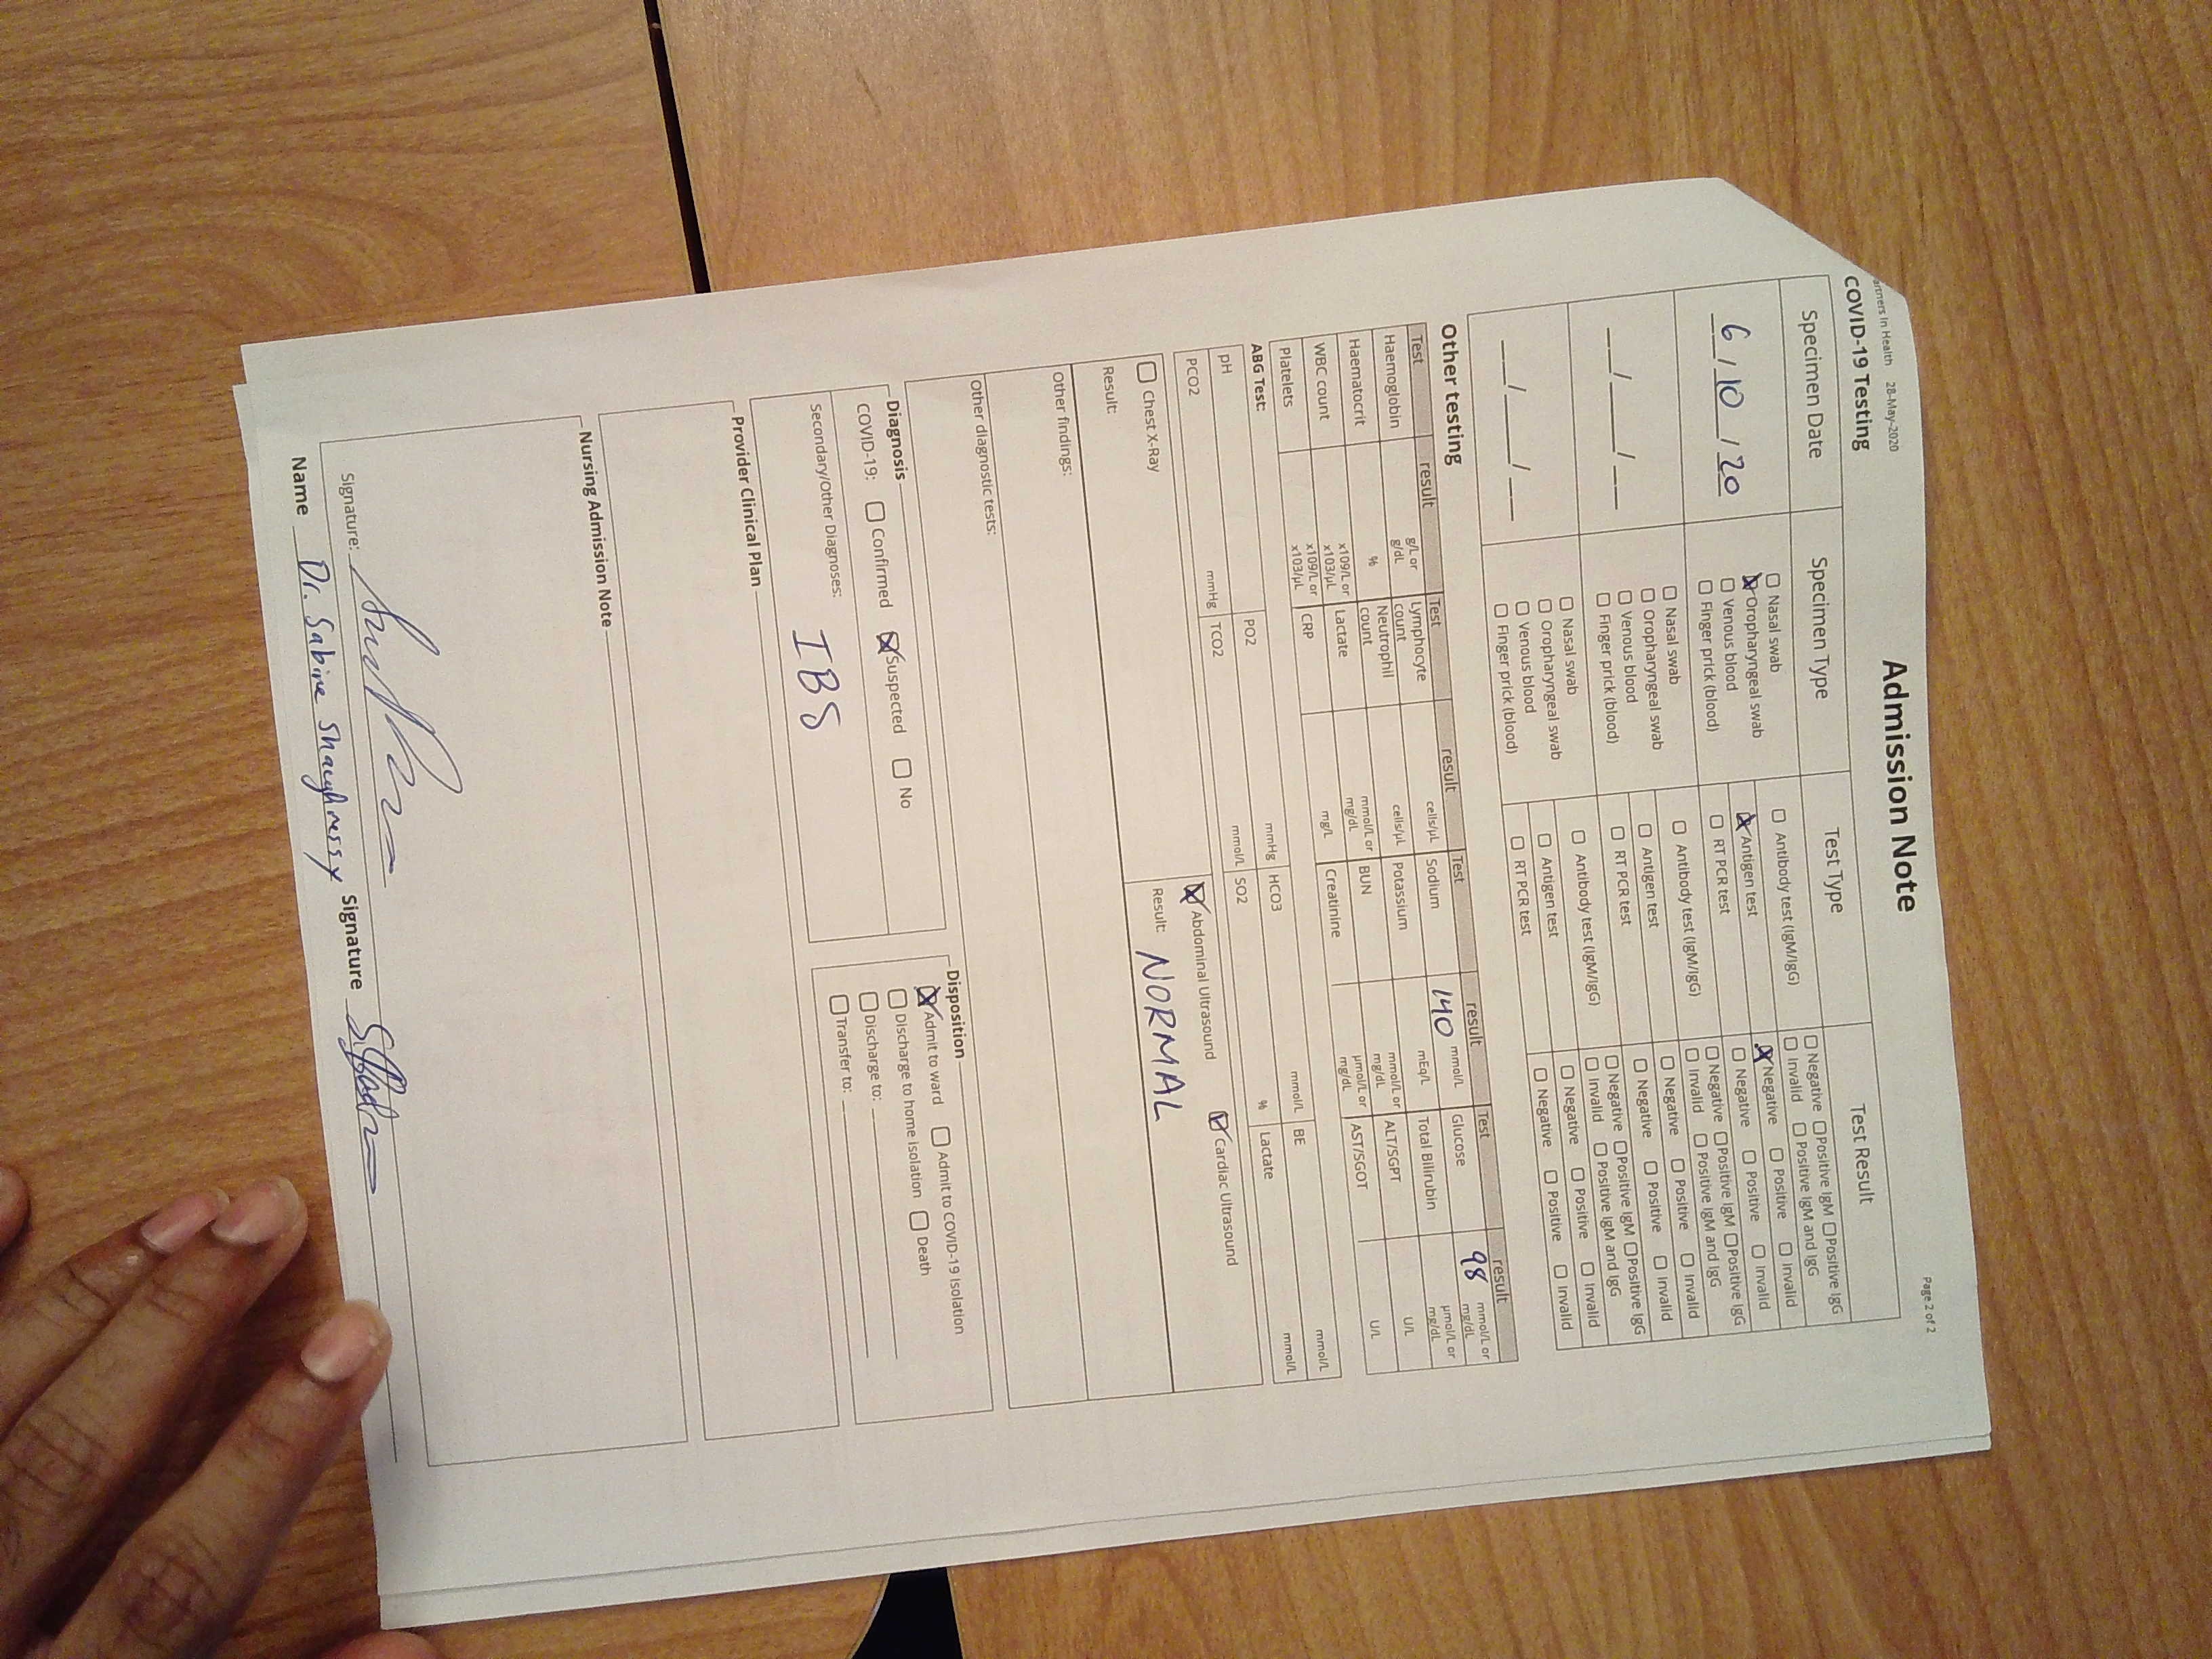 artners In Health 28-May-2020
Page 2 of 2
Admission Note
COVID-19 Testing
Specimen Date Specimen Type Test Type Test Result
6 / 10 / 20
☐ Nasal swab
☒ Oropharyngeal swab
☐ Venous blood
☐ Finger prick (blood)
☐ Antibody test (IgM/IgG) ☐ Negative ☐ Positive IgM ☐ Positive IgG
☐ Invalid ☐ Positive IgM and IgG
☒ Antigen test ☒ Negative ☐ Positive ☐ Invalid
☐ RT PCR test ☐ Negative ☐ Positive ☐ Invalid
__/__/__
☐ Nasal swab
☐ Oropharyngeal swab
☐ Venous blood
☐ Finger prick (blood)
☐ Antibody test (IgM/IgG) ☐ Negative ☐ Positive IgM ☐ Positive IgG
☐ Invalid ☐ Positive IgM and IgG
☐ Antigen test ☐ Negative ☐ Positive ☐ Invalid
☐ RT PCR test ☐ Negative ☐ Positive ☐ Invalid
__/__/__
☐ Nasal swab
☐ Oropharyngeal swab
☐ Venous blood
☐ Finger prick (blood)
☐ Antibody test (IgM/IgG) ☐ Negative ☐ Positive IgM ☐ Positive IgG
☐ Invalid ☐ Positive IgM and IgG
☐ Antigen test ☐ Negative ☐ Positive ☐ Invalid
☐ RT PCR test ☐ Negative ☐ Positive ☐ Invalid
Other testing
Test result Test result Test result Test result
Haemoglobin g/L or g/dL Lymphocyte count cells/µL Sodium 140 mmol/L Glucose 98 mmol/L or mg/dL
Haematocrit % Neutrophil count cells/µL Potassium mEq/L Total Bilirubin µmol/L or mg/dL
WBC count x109/L or x103/µL Lactate mmol/L or mg/dL BUN mmol/L or mg/dL ALT/SGPT U/L
Platelets x109/L or x103/µL CRP mg/L Creatinine µmol/L or mg/dL AST/SGOT U/L
ABG Test:
pH PO2 mmHg HCO3 mmol/L BE mmol/L
PCO2 mmHg TCO2 mmol/L SO2 % Lactate mmol/L
☐ Chest X-Ray ☒ Abdominal Ultrasound ☑ Cardiac Ultrasound
Result: Result: NORMAL
Other findings:
Other diagnostic tests:
Diagnosis
COVID-19: ☐ Confirmed ☒ Suspected ☐ No
Secondary/Other Diagnoses:
IBS
Disposition
☒ Admit to ward ☐ Admit to COVID-19 Isolation
☐ Discharge to home isolation ☐ Death
☐ Discharge to:
☐ Transfer to:
Provider Clinical Plan
Nursing Admission Note
Signature:
Name Dr. Sabine Shaughnessy Signature